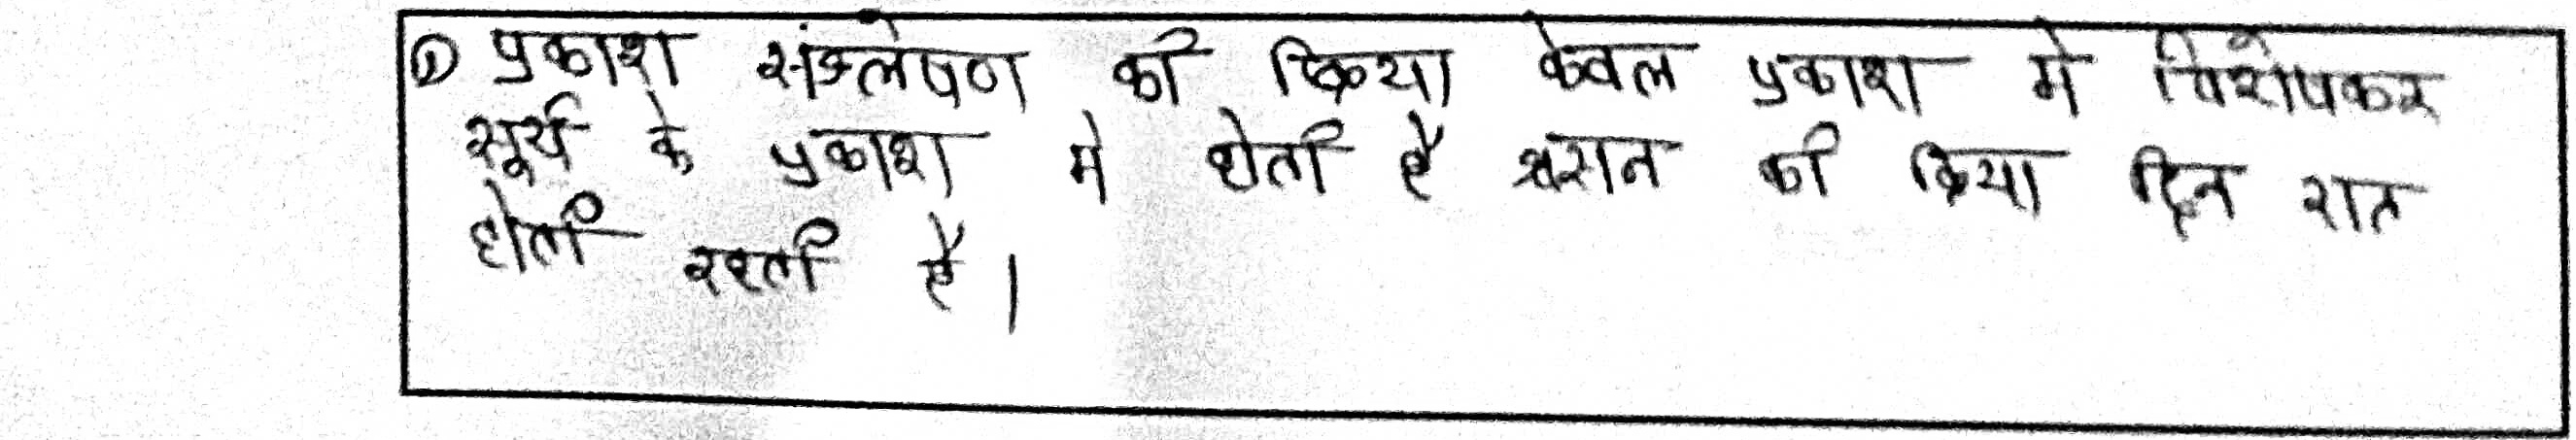 ① प्रकाश संश्लेषण की क्रिया केवल प्रकाश मे विशेषकर
सूर्य के प्रकाश मे होती है श्वसन की क्रिया दिन रात
होती रहती है।